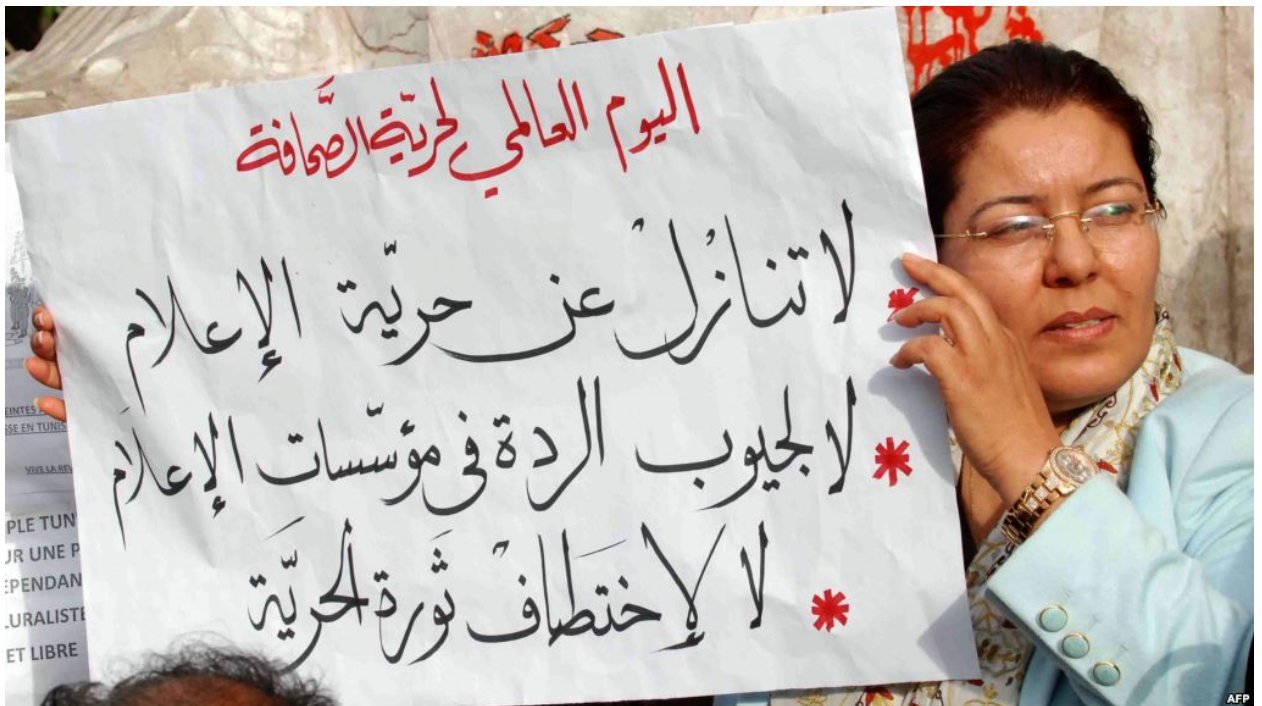 اليوم العالمي لحريّة الصَّحافة
* لا تنازُلْ عن حريّة الإعلام
* لا لجيوب الردة في مؤسّسات الإعلاَم
* لا لإختطافْ ثَورة الحريَّة
SE EN TUNIS
VIVE LA REV
PLE TUN
UR UNE P
ÉPENDAN
LURALISTE
ET LIBRE
AFP